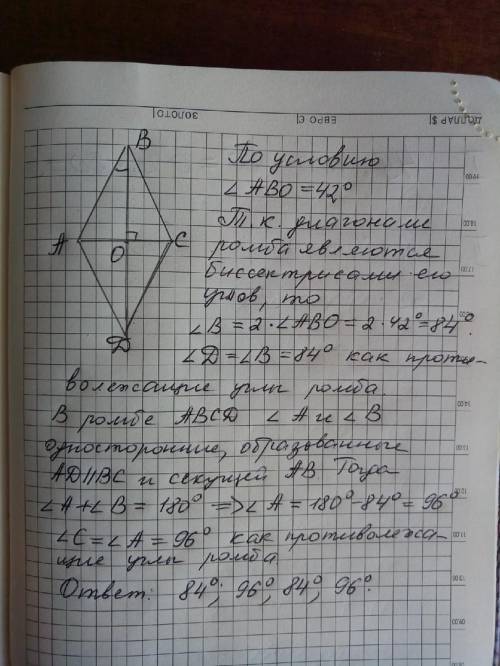 ДОЛЛАР $|
ЕВРО €|
ЗОЛОТО|
B
A
C
O
D
По условию
∠ABO = 42°
Т.к. диагонали
ромба являются
биссектрисами его
углов, то
∠B = 2·∠ABO = 2·42° = 84°.
∠D = ∠B = 84° как проти-
волежащие углы ромба
В ромбе ABCD ∠A и ∠B
односторонние, образованные
AD||BC и секущей AB. Тогда
∠A + ∠B = 180° => ∠A = 180° - 84° = 96°
∠C = ∠A = 96° как противолежа-
щие углы ромба
Ответ: 84°; 96°; 84°; 96°.
19.00
18.00
17.00
14.00
13.00
12.00
11.00
10.00
09.00